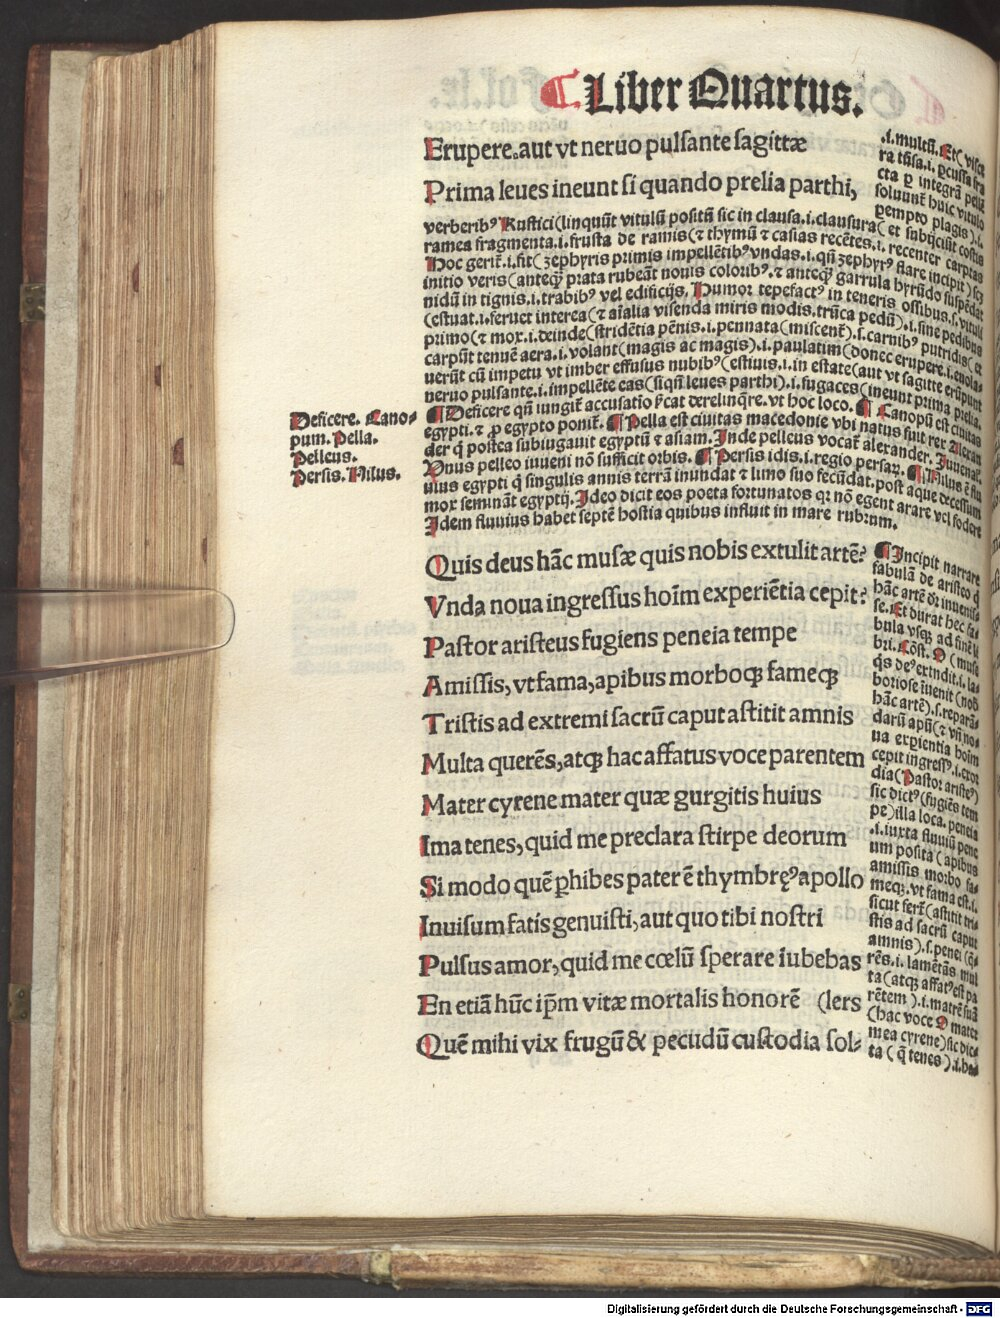 ¶ Liber Quartus.
Erupere. aut vt neruo pulsante sagittæ
Prima leues ineunt si quando prelia parthi,
.i. multū. Et( visce
ra tūsa.i. ꝑcussa
cta ꝑ integrā pellē
soluunt̄ huic vitulo
ꝑempto plagis).i.
verberibꝰ Rustici(linquūt vitulū positū sic in clausa.i.clausura( et subijciūt costis
ramea fragmenta.i.frusta de ramis(⁊ thymū ⁊ casias recētes.i. recenter carptas
Hoc gerit̄.i.fit( zephyris primis impellētibꝰ vndas.i.qn̄ zephyrꝰ flare incipit).s.
initio veris(anteqꝫ prata rubeāt nouis coloribꝰ.⁊ anteqꝫ garrula hyrūdo suspēdat
nidū in tignis.i.trabibꝰ vel edificijs. Humor tepefactꝰ in teneris ossibus.s.vituli
(estuat.i.feruet interea(⁊ aīalia visenda miris modis.trūca pedū).i.sine pedibus
primo(⁊ mox.i.deinde(stridētia pēnis.i.pennata(miscent̄).s.carnibꝰ putridis( et
carpūt tenuē aera.i.volant(magis ac magis).i.paulatim(donec erupere.i.euola-
uerūt cū impetu vt imber effusus nubibꝰ(estiuis.i.in estate(aut vt sagitte erūpunt
neruo pulsante.i.impellēte eas(si qn̄ leues parthi).i.fugaces(ineunt prima prelia.
¶ Deficere qn̄ iungit̄ accusatio ſcat derelinqͥre. vt hoc loco. ¶ Canopū est ciuitas
egypti.⁊ ꝓ egypto ponit̄. ¶ Pella est ciuitas macedonie vbi natus fuit rex Alexan
der qͥ postea subiugauit egyptū ⁊ asiam. Inde pelleus vocat̄ alexander. Juuenal̄.
Vnus pelleo iuueni nō sufficit orbis. ¶ Persis idis.i.regio persaꝝ. ¶ Nilus ē flu
uius egypti qͥ singulis annis terrā inundat ⁊ limo suo fecūdat.post aque decessum
mox semināt egyptij. Ideo dicit eos poeta fortunatos qꝛ nō egent arare vel fodere
Idem fluuius habet septē hostia quibus influit in mare rubrum.
Deficere. Cano-
pum. Pella.
Pelleus.
Persis. Nilus.
Quis deus hāc musæ quis nobis extulit artē?
Vnda noua ingressus hoīm experiētia cepit?
Pastor aristeus fugiens peneia tempe
Amissis, vt fama, apibus morboqꝫ fameqꝫ
Tristis ad extremi sacrū caput astitit amnis
Multa querēs, atqꝫ hac affatus voce parentem
Mater cyrene mater quæ gurgitis huius
Ima tenes, quid me preclara stirpe deorum
Si modo quē ꝑhibes pater ē thymbręꝰ apollo
Inuisum fatis genuisti, aut quo tibi nostri
Pulsus amor, quid me cœlū sperare iubebas
En etiā hūc ip̄m vitæ mortalis honorē (lers
Quē mihi vix frugū & pecudū custodia sol-
¶ Incipit narrare
fabulā de aristeo qͥ
hāc artē dr̄ inuenis-
se. Et durat hec fa-
bula vsqꝫ ad finē li
bri. Cōst. O (muse
qͥs deꝰ extudit.i.la-
boriose īuenit(nob̄
hāc artē).s.reparā-
darū apū(⁊ vn̄ no-
ua exꝑientia hoīm
cepit ingressꝰ.i.exor
dia( Pastor aristeꝰ)
sic dictꝰ(fugiēs tem
pe)illa loca. peneia
.i.iuxta fluuiū pene
um posita( apibus
amissis morbo fa-
meqꝫ. vt fama est.i.
sicut fert̄(astitit tri-
stis ad sacrū caput
amnis).s.penei(q̄-
rēs.i.lamētās mul
ta(atqꝫ affatꝰ est pa
rētem).i.matrē suā
(hac voce O mater
mea cyrene)sic dic-
ta( q̄ tenes).i.ha-
Digitalisierung gefördert durch die Deutsche Forschungsgemeinschaft - DFG